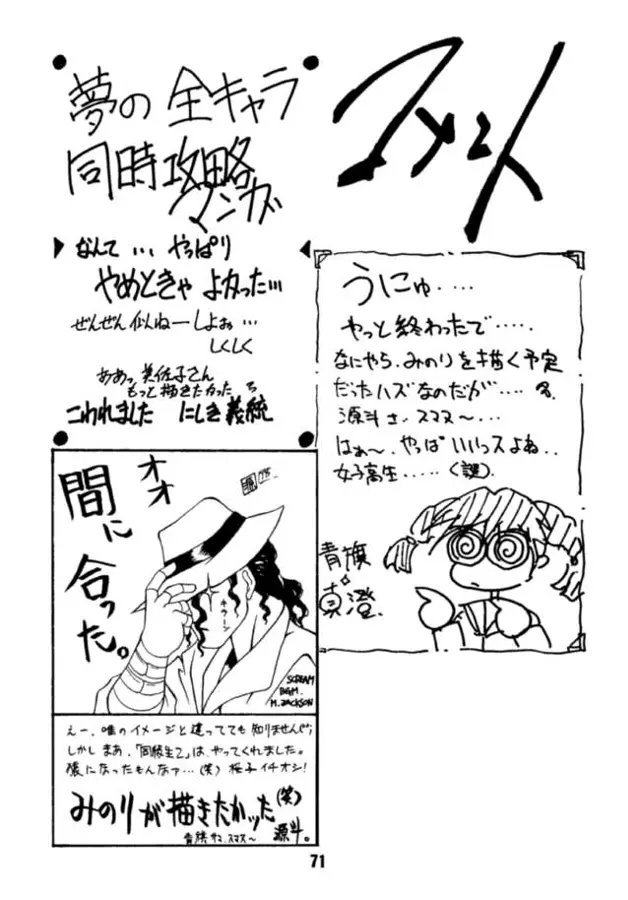 コメント
夢の全キャラ
同時攻略
マンガ
なんて…やっぱり
やめときゃ よかった…
ぜんぜん似ねーしよぉ…
しくしく
ああっ美佐子さん
もっと描きたかった
こわれました にしき義統
うにゅ・・・・
やっと終わったで・・・・・
なにやら、みのりを描く予定
だったハズなのだが・・・・
源斗さ、スマヌ〜・・・
はぁ〜、やっぱいいっスよね・・
女子高生・・・・・(謎)
青旗
真澄
オオ
間に
合った。
SCREAM
BGM.
M.JACKSON
えー、唯のイメージと違ってても知りませんぜ;
しかしまあ、「同級生2」は、やってくれました。
猿になったもんなァ…(笑) 桜子イチオシ!
みのりが描きたかッた(笑)
青旗サマ、スマヌ〜
源斗。
71